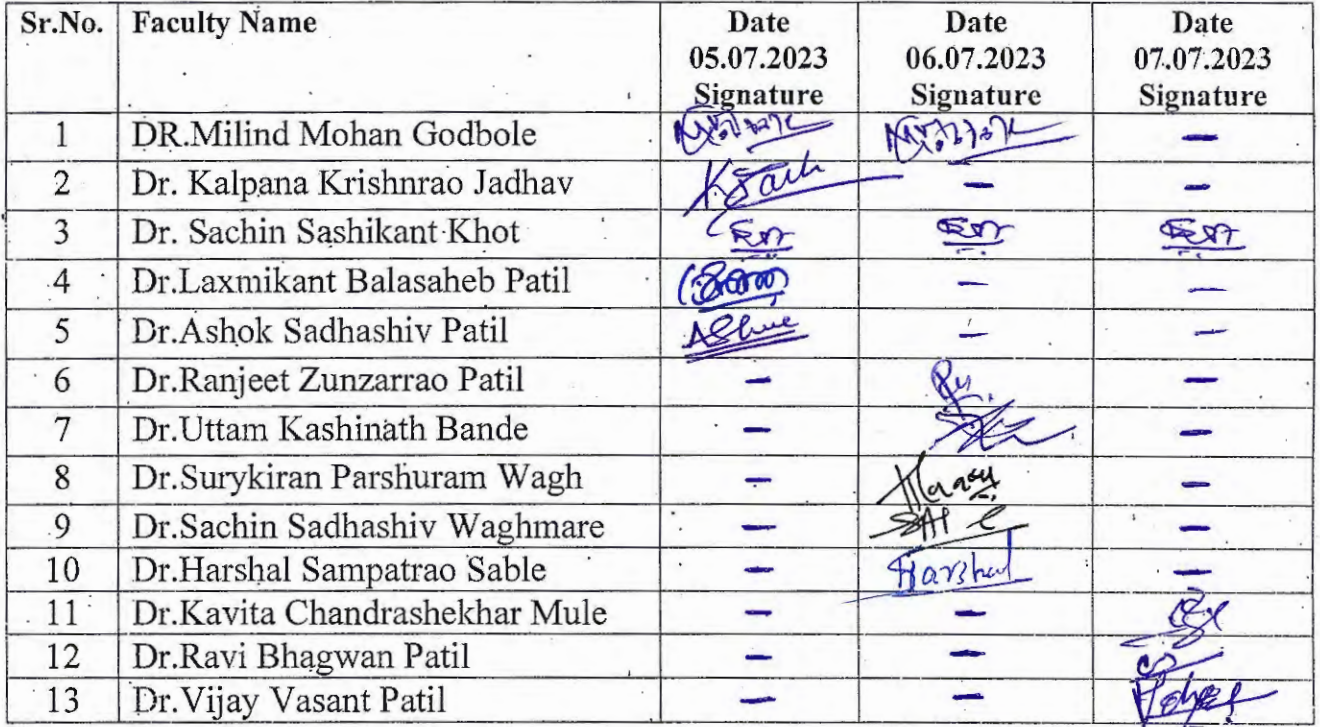 Sr.No. Faculty Name Date 05.07.2023 Signature Date 06.07.2023 Signature Date 07.07.2023 Signature
1 DR.Milind Mohan Godbole –
2 Dr. Kalpana Krishnrao Jadhav – –
3 Dr. Sachin Sashikant Khot
4 Dr.Laxmikant Balasaheb Patil – –
5 Dr.Ashok Sadhashiv Patil – –
6 Dr.Ranjeet Zunzarrao Patil – –
7 Dr.Uttam Kashinath Bande – –
8 Dr.Surykiran Parshuram Wagh – –
9 Dr.Sachin Sadhashiv Waghmare – –
10 Dr.Harshal Sampatrao Sable – Harshal –
11 Dr.Kavita Chandrashekhar Mule – –
12 Dr.Ravi Bhagwan Patil – –
13 Dr.Vijay Vasant Patil – –